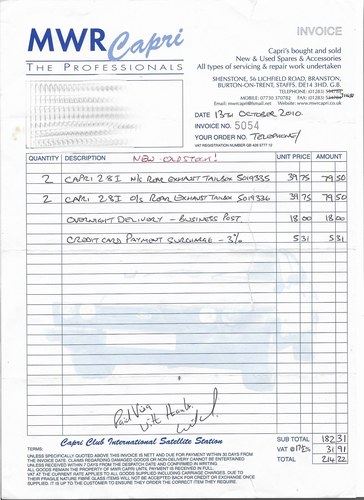 MWR Capri
THE PROFESSIONALS
INVOICE
Capri's bought and sold
New & Used Spares & Accessories
All types of servicing & repair work undertaken
SHENSTONE, 56 LICHFIELD ROAD, BRANSTON,
BURTON-ON-TRENT, STAFFS. DE14 3HD. G.B.
TELEPHONE: (01283)
MOBILE: 07730 570782 FAX: (01283)
Email: mwrcapri@hotmail.net Website: www.mwrcapri.co.uk
DATE 13TH OCTOBER 2010
INVOICE NO. 5054
YOUR ORDER NO. TELEPHONE/
VAT REGISTRATION NUMBER GB 426 5777 12
QUANTITY DESCRIPTION NEW OLD STOCK! UNIT PRICE AMOUNT
2 CAPRI 2.8I N/S REAR EXHAUST TAILBOX 5019335 39.75 79.50
2 CAPRI 2.8I O/S REAR EXHAUST TAILBOX 5019336 39.75 79.50
OVERNIGHT DELIVERY - BUSINESS POST 18.00 18.00
CREDIT CARD PAYMENT SURCHARGE - 3% 5.31 5.31
Paid Visa
With thanks
Capri Club International Satellite Station
SUB TOTAL 182.31
VAT @ 17½% 31.91
TOTAL 214.22
TERMS:
UNLESS SPECIFICALLY QUOTED ABOVE THIS INVOICE IS NETT AND DUE FOR PAYMENT WITHIN 30 DAYS FROM
THE INVOICE DATE. CLAIMS REGARDING DAMAGED GOODS OR NON-DELIVERY CANNOT BE ENTERTAINED
UNLESS RECEIVED WITHIN 7 DAYS FROM THE DESPATCH DATE AND CONFIRMED IN WRITING.
ALL GOODS REMAIN THE PROPERTY OF MWR CAPRI UNTIL PAYMENT IS RECEIVED IN FULL.
VAT AT THE CURRENT RATE APPLIES TO ALL GOODS SUPPLIED INCLUDING CARRIAGE CHARGES. DUE TO
THEIR FRAGILE NATURE FIBRE GLASS ITEMS WILL NOT BE ACCEPTED BACK FOR CREDIT OR EXCHANGE ONCE
SUPPLIED. IT IS UP TO THE CUSTOMER TO ENSURE THEY ORDER THE CORRECT ITEM THEY REQUIRE.